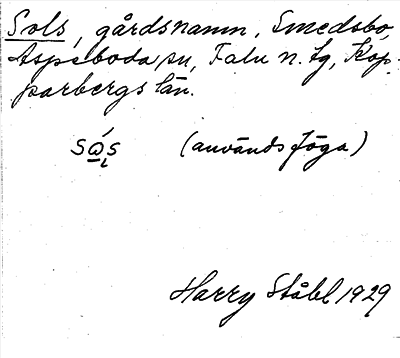 Sols, gårdsnamn, Smedsbo,
Aspeboda sn, Falu n. tg, Kop-
parbergs län.
(används föga)
Harry Ståhl 1929